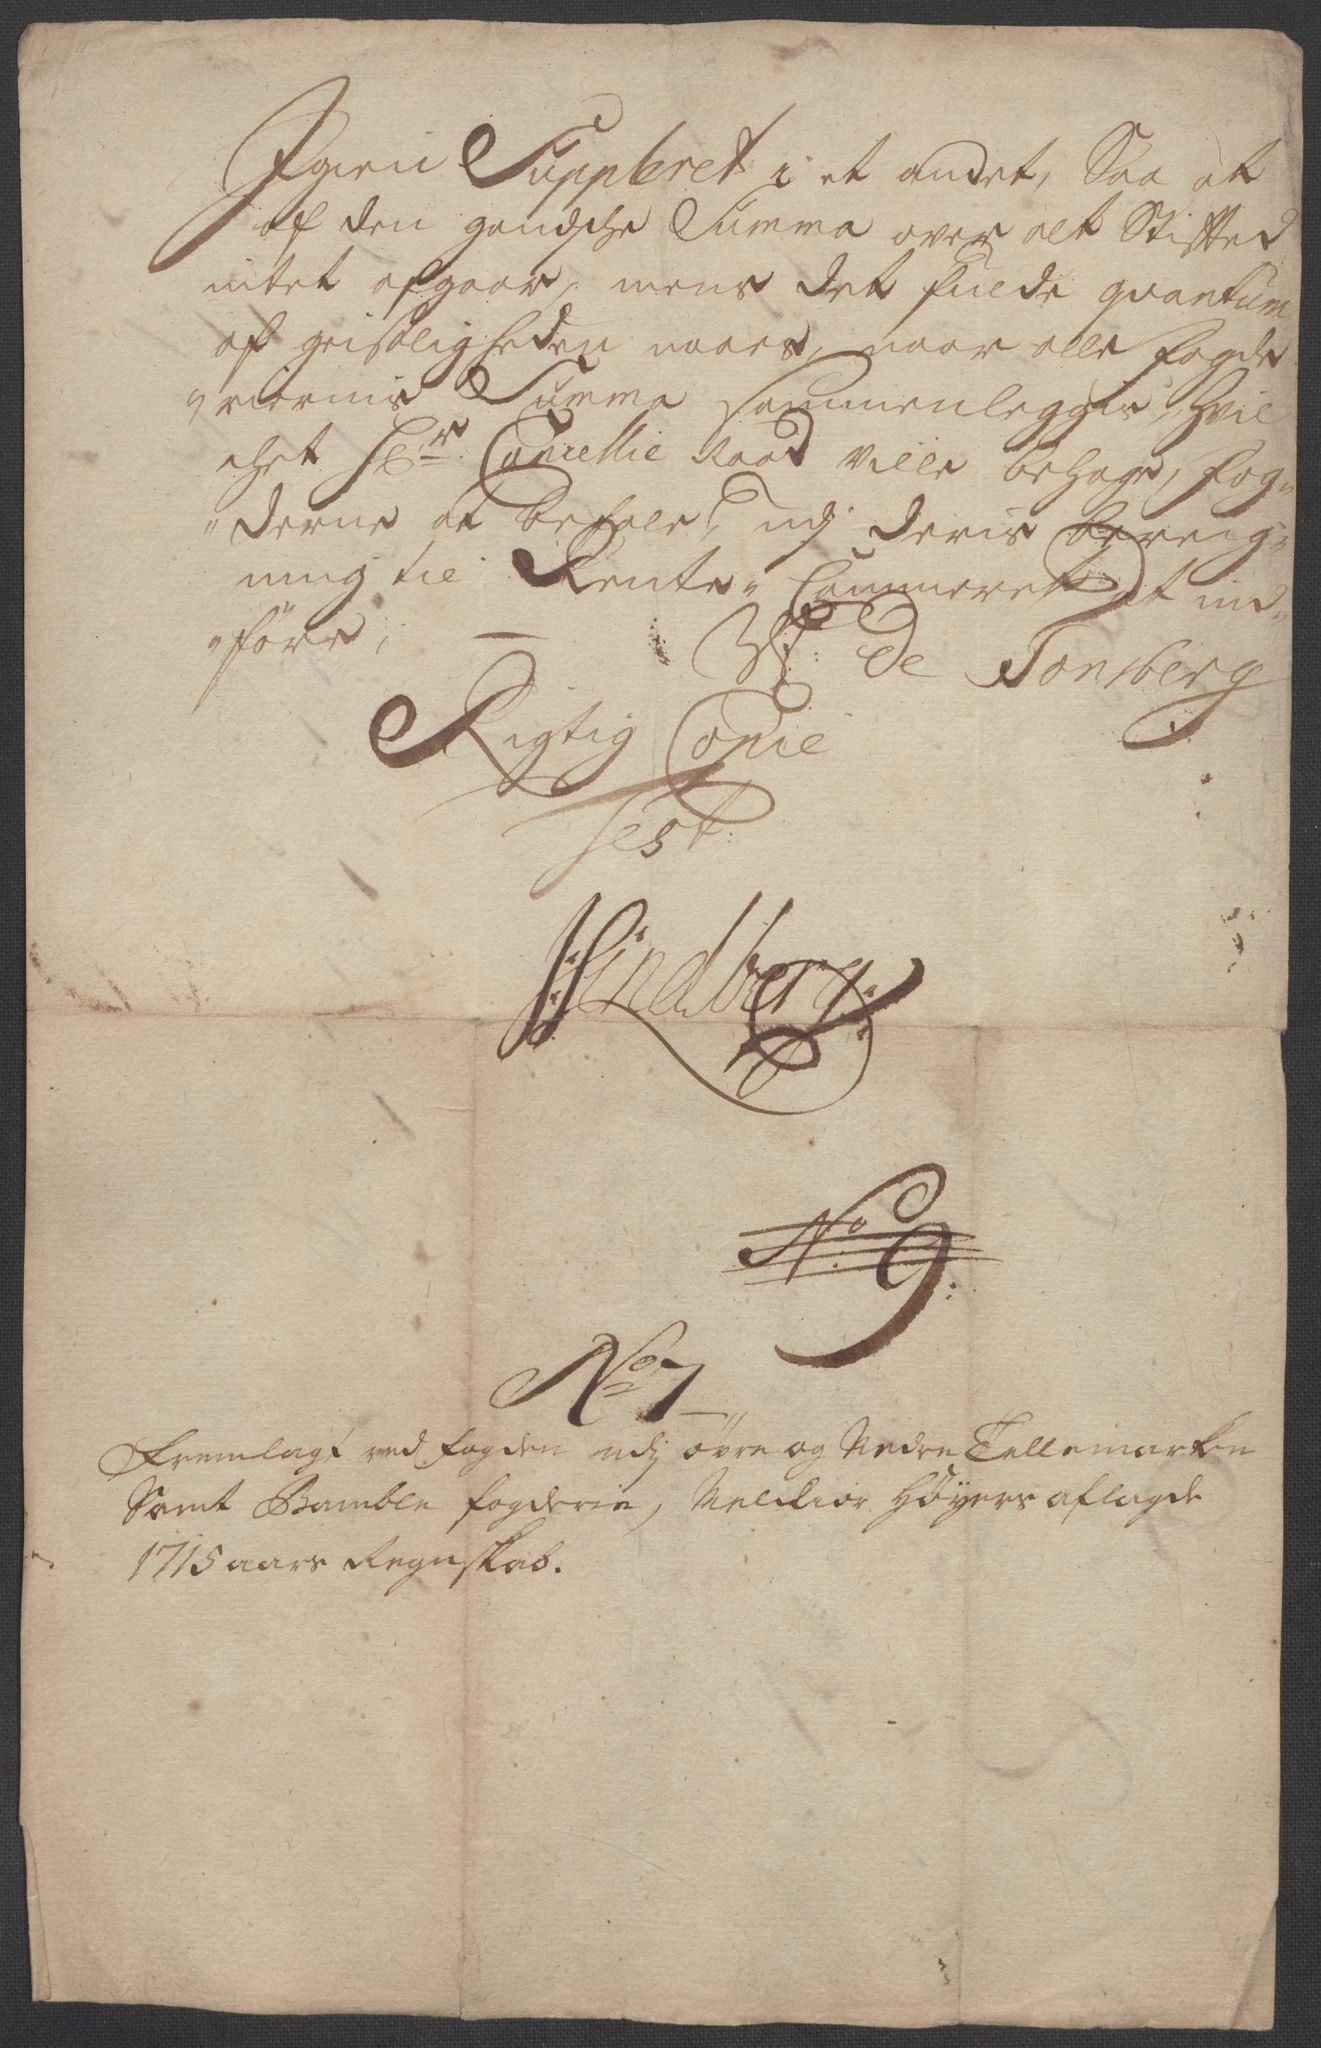 Igien Suppleret i et andet, Saa at
af den gandsche Summa over alt Stifted
intet afgaar, mens det fulde quantum
af geistligheden naaes, naar alle fogde
"riernis Summa sammenlegges, hvil
chet Hr. Cancellie Raad ville behage, fog"
"derne at befale, udj deris bereig"
ning til Rente" Cammeret at ind"
"føre,
W: de Tonsberg
Rigtig Copie
Test
Lindberg
No. 9
No 7
Fremlagt ved fogden udj øvre og Nedre Tellemarken
Samt Bamble fogderie, Melchior Høyers aflagde
1715 aars Regnskab.